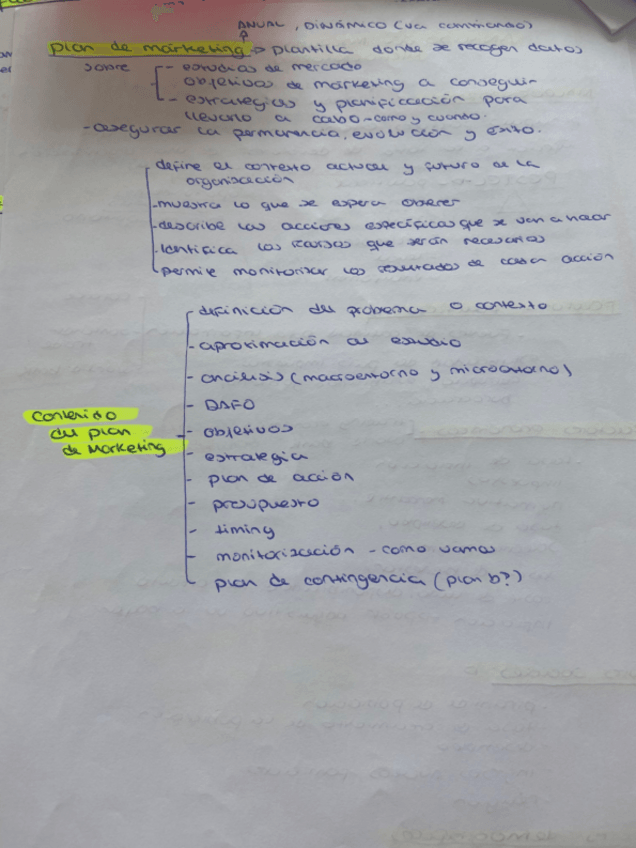 ANUAL, DINÁMICO (va cambiando)
plan de marketing → plantilla donde se recogen datos
sobre - estudios de mercado
objetivos de marketing a conseguir
- estrategias y planificación para
llevarlo a cabo - como y cuando.
- asegurar la permanencia, evolución y éxito.
define el contexto actual y futuro de la
organización
- muestra lo que se espera obtener
- describe las acciones específicas que se van a hacer
- Identifica los recursos que serán necesarios
permite monitorizar los resultados de cada acción
- definición del problema o contexto
- aproximación al estudio
- análisis (macroentorno y microentorno)
- DAFO
contenido
del plan
de marketing
- objetivos
- estrategia
- plan de acción
- presupuesto
- timing
- monitorización - como vamos
- plan de contingencia (plan b?)